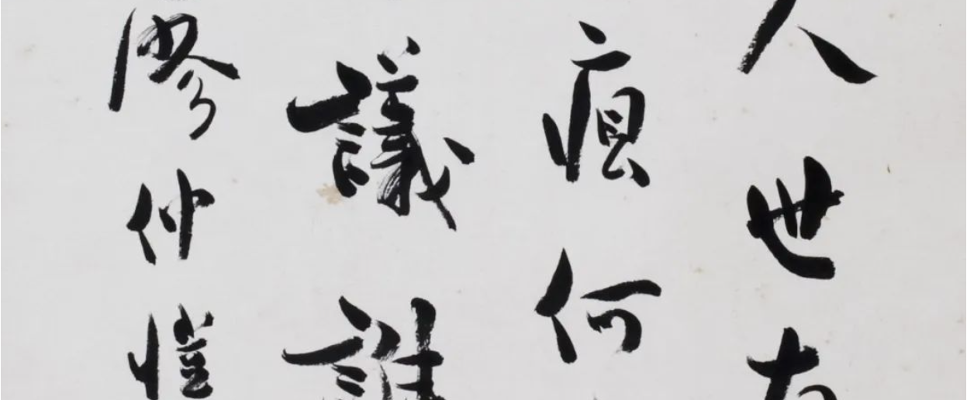 人世
痕何
議誰
廖仲愷